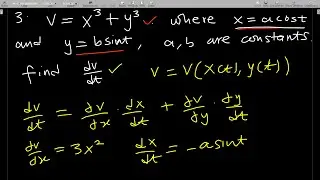 3. V = x³ + y³ where x = a cost
and y = b sint, a, b are constants.
find dv/dt ✓ V = V(x(t), y(t))
dv/dt = dv/dx · dx/dt + dv/dy · dy/dt
dv/dx = 3x² dx/dt = -a sint